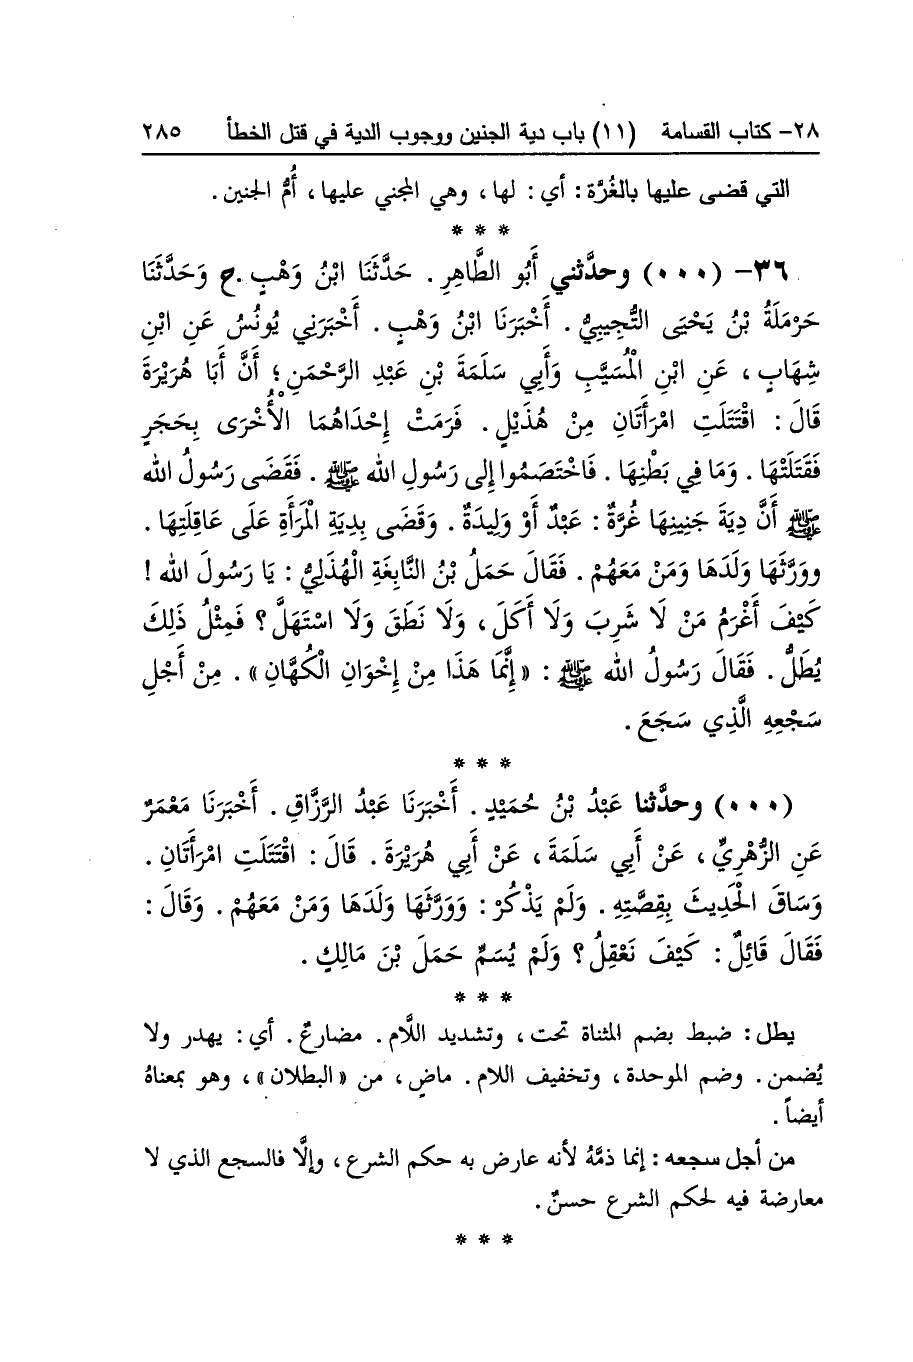 ٢٨- كتاب القسامة (١١) باب دية الجنين ووجوب الدية في قتل الخطأ ٢٨٥
التي قضى عليها بالغُرَّة : أي : لها ، وهي المجني عليها ، أُمُّ الجنين .
* * *
٣٦- (٠٠٠) وحدَّثني أَبُو الطَّاهِرِ . حَدَّثَنَا ابْنُ وَهْبٍ .ح وَحَدَّثَنَا
حَرْمَلَةُ بْنُ يَحْيَى التُّجِيبِيُّ . أَخْبَرَنَا ابْنُ وَهْبٍ . أَخْبَرَنِي يُونُسُ عَنِ ابْنِ
شِهَابٍ ، عَنِ ابْنِ الْمُسَيَّبِ وَأَبِي سَلَمَةَ بْنِ عَبْدِ الرَّحْمَنِ ؛ أَنَّ أَبَا هُرَيْرَةَ
قَالَ : اقْتَتَلَتِ امْرَأَتَانِ مِنْ هُذَيْلٍ . فَرَمَتْ إِحْدَاهُمَا الْأُخْرَى بِحَجَرٍ
فَقَتَلَتْهَا . وَمَا فِي بَطْنِهَا . فَاخْتَصَمُوا إِلى رَسُولِ الله ﷺ . فَقَضَى رَسُولُ الله
ﷺ أَنَّ دِيَةَ جَنِينِهَا غُرَّةٌ : عَبْدٌ أَوْ وَلِيدَةٌ . وَقَضَى بِدِيَةِ الْمَرْأَةِ عَلَى عَاقِلَتِهَا .
ووَرَّثَهَا وَلَدَهَا وَمَنْ مَعَهُمْ . فَقَالَ حَمَلُ بْنُ النَّابِغَةِ الْهُذَلِيُّ : يَا رَسُولَ الله !
كَيْفَ أَغْرَمُ مَنْ لَا شَرِبَ وَلَا أَكَلَ ، وَلَا نَطَقَ وَلَا اسْتَهَلَّ ؟ فَمِثْلُ ذَلِكَ
يُطَلُّ . فَقَالَ رَسُولُ الله ﷺ : « إِنَّمَا هَذَا مِنْ إِخْوَانِ الْكُهَّانِ » . مِنْ أَجْلِ
سَجْعِهِ الَّذِي سَجَعَ .
* * *
(٠٠٠) وحدَّثنا عَبْدُ بْنُ حُمَيْدٍ . أَخْبَرَنَا عَبْدُ الرَّزَّاقِ . أَخْبَرَنَا مَعْمَرٌ
عَنِ الزُّهْرِيِّ ، عَنْ أَبِي سَلَمَةَ ، عَنْ أَبِي هُرَيْرَةَ . قَالَ : اقْتَتَلَتِ امْرَأَتَانِ .
وَسَاقَ الْحَدِيثَ بِقِصَّتِهِ . وَلَمْ يَذْكُرْ : وَوَرَّثَهَا وَلَدَهَا وَمَنْ مَعَهُمْ . وَقَالَ :
فَقَالَ قَائِلٌ : كَيْفَ نَعْقِلُ ؟ وَلَمْ يُسَمِّ حَمَلَ بْنَ مَالِكٍ .
* * *
يطل : ضبط بضم المثناة تحت ، وتشديد اللَّام . مضارعٌ . أي : يهدر ولا
يُضمن . وضم الموحدة ، وتخفيف اللام . ماضٍ ، من « البطلان » ، وهو بمعناهُ
أيضاً .
من أجل سجعه : إنما ذمَّهُ لأنه عارض به حكم الشرع ، وإلَّا فالسجع الذي لا
معارضة فيه لحكم الشرع حسنٌ .
* * *